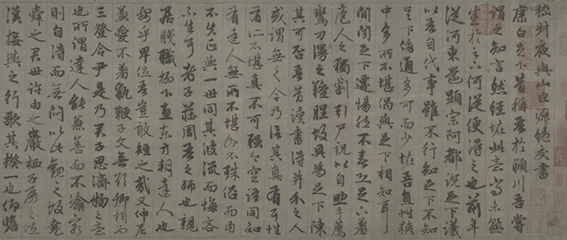 嵇叔夜與山巨源絕交書
康白足下昔稱吾於潁川吾嘗
謂之知言然經怪此意尚未熟
悉於足下何從便得之也前年
從河東還顯宗阿都說足下議
以吾自代事雖不行知足下不知
之足下傍通多可而少怪吾直性狹
中多所不堪偶與足下相知耳
間聞足下遷惕然不喜恐足下羞
庖人之獨割引尸祝以自助手薦
鸞刀漫之羶腥故具為足下陳
其可否吾昔讀書得并介之人
或謂無之今乃信其真有耳性
有所不堪真不可強今空語同知
有達人無所不堪外不殊俗而內
不失正與一世同其波流而悔吝
不生耳老子莊周吾之師也親
居賤職柳下惠東方朔達人也
安乎卑位吾豈敢短之哉又仲尼
兼愛不羞執鞭子文無欲卿相而
三登令尹是乃君子思濟物之意
也所謂達人能兼善而不渝窮
則自得而無悶以此觀之故堯
舜之君世許由之巖棲子房之佐
漢接輿之行歌其揆一也仰瞻